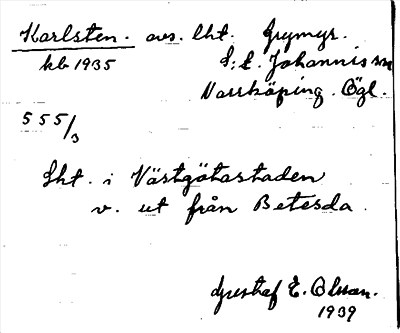 Karlsten. avs. lht. Grymyr.
kb 1935 S:t Johannis sn
Norrköping. Ögl.
555/3
Lht. i Västgötastaden
v. ut från Betesda.
Gustaf E. Olsson.
1939